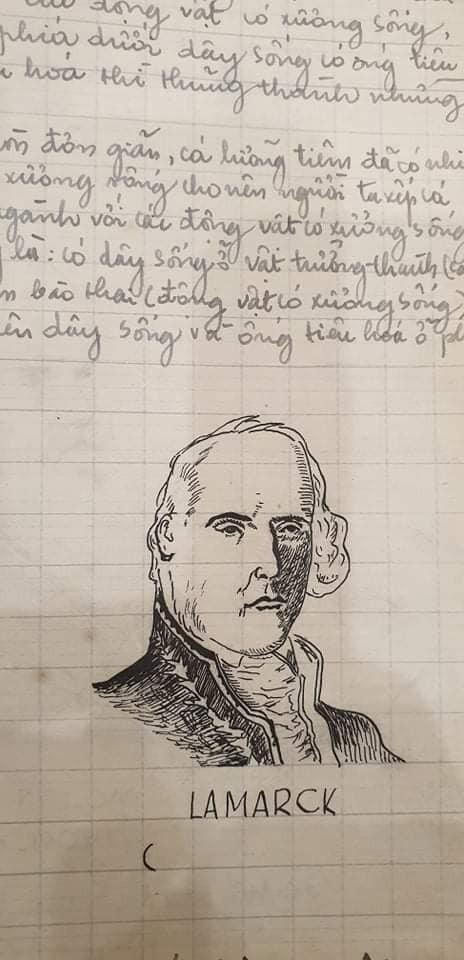 động vật có xương sống,
phiá dưới dây sống có ống tiêu
hoá thì thũng thành những
đơn giãn, cá lưỡng tiêm đã có nhi
xương sống cho nên người ta xếp cá
ngành với các động vật có xương sống
là: có dây sống ở vật trưởng-thành (cá
bào thai (động vật có xương sống)
dây sống và ống tiêu hoá ở
LAMARCK
(